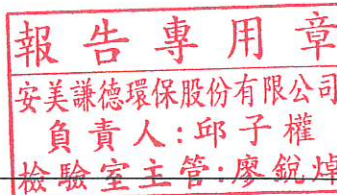 報告專用章
安美謙德環保股份有限公司
負責人:邱子權
檢驗室主管:廖銳焯